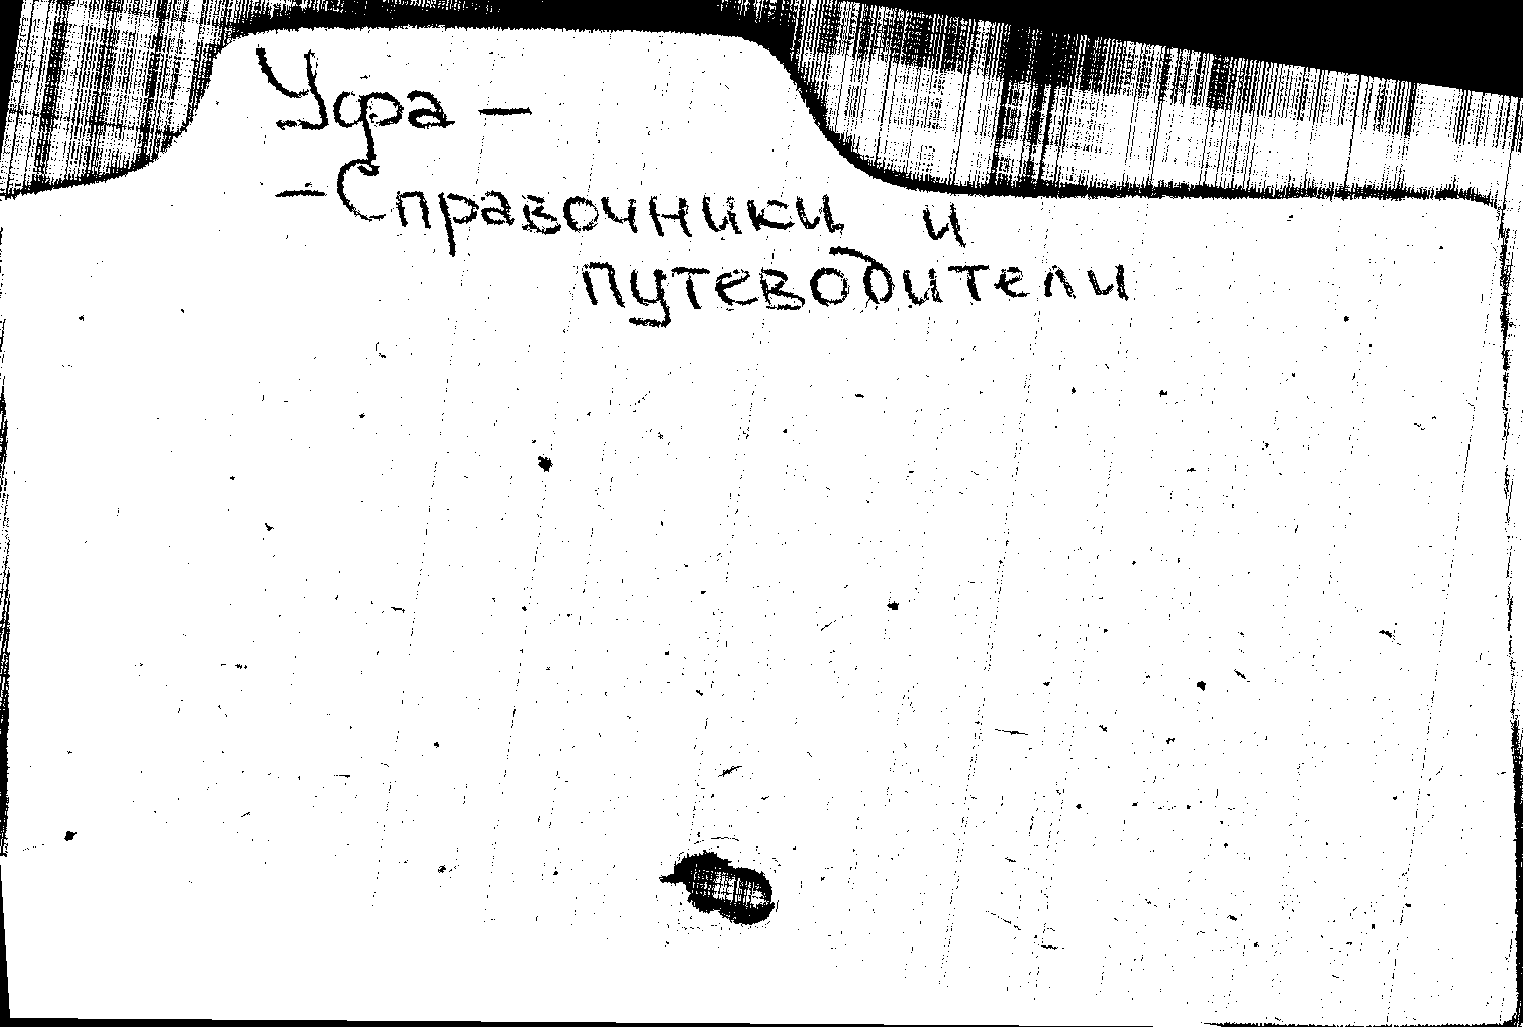 Уфа -
- Справочники и
путеводители